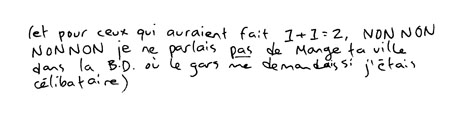 (et pour ceux qui auraient fait 1+1=2, NON NON
NON NON je ne parlais pas de Mange ta ville
dans la B.D. où le gars me demandais si j'étais
célibataire)